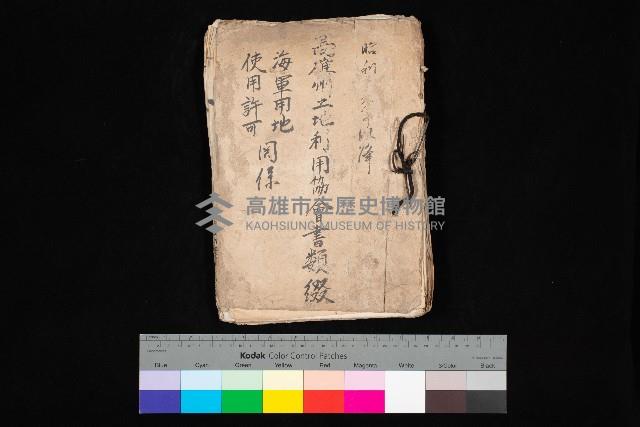 昭和 年以降
灣州土地利用協會書類綴
海軍用地
使用許可
関係
高雄市立歷史博物館
KAOHSIUNG MUSEUM OF HISTORY
Kodak Color Control Patches
Blue Cyan Green Yellow Red Magenta White 3/Color Black